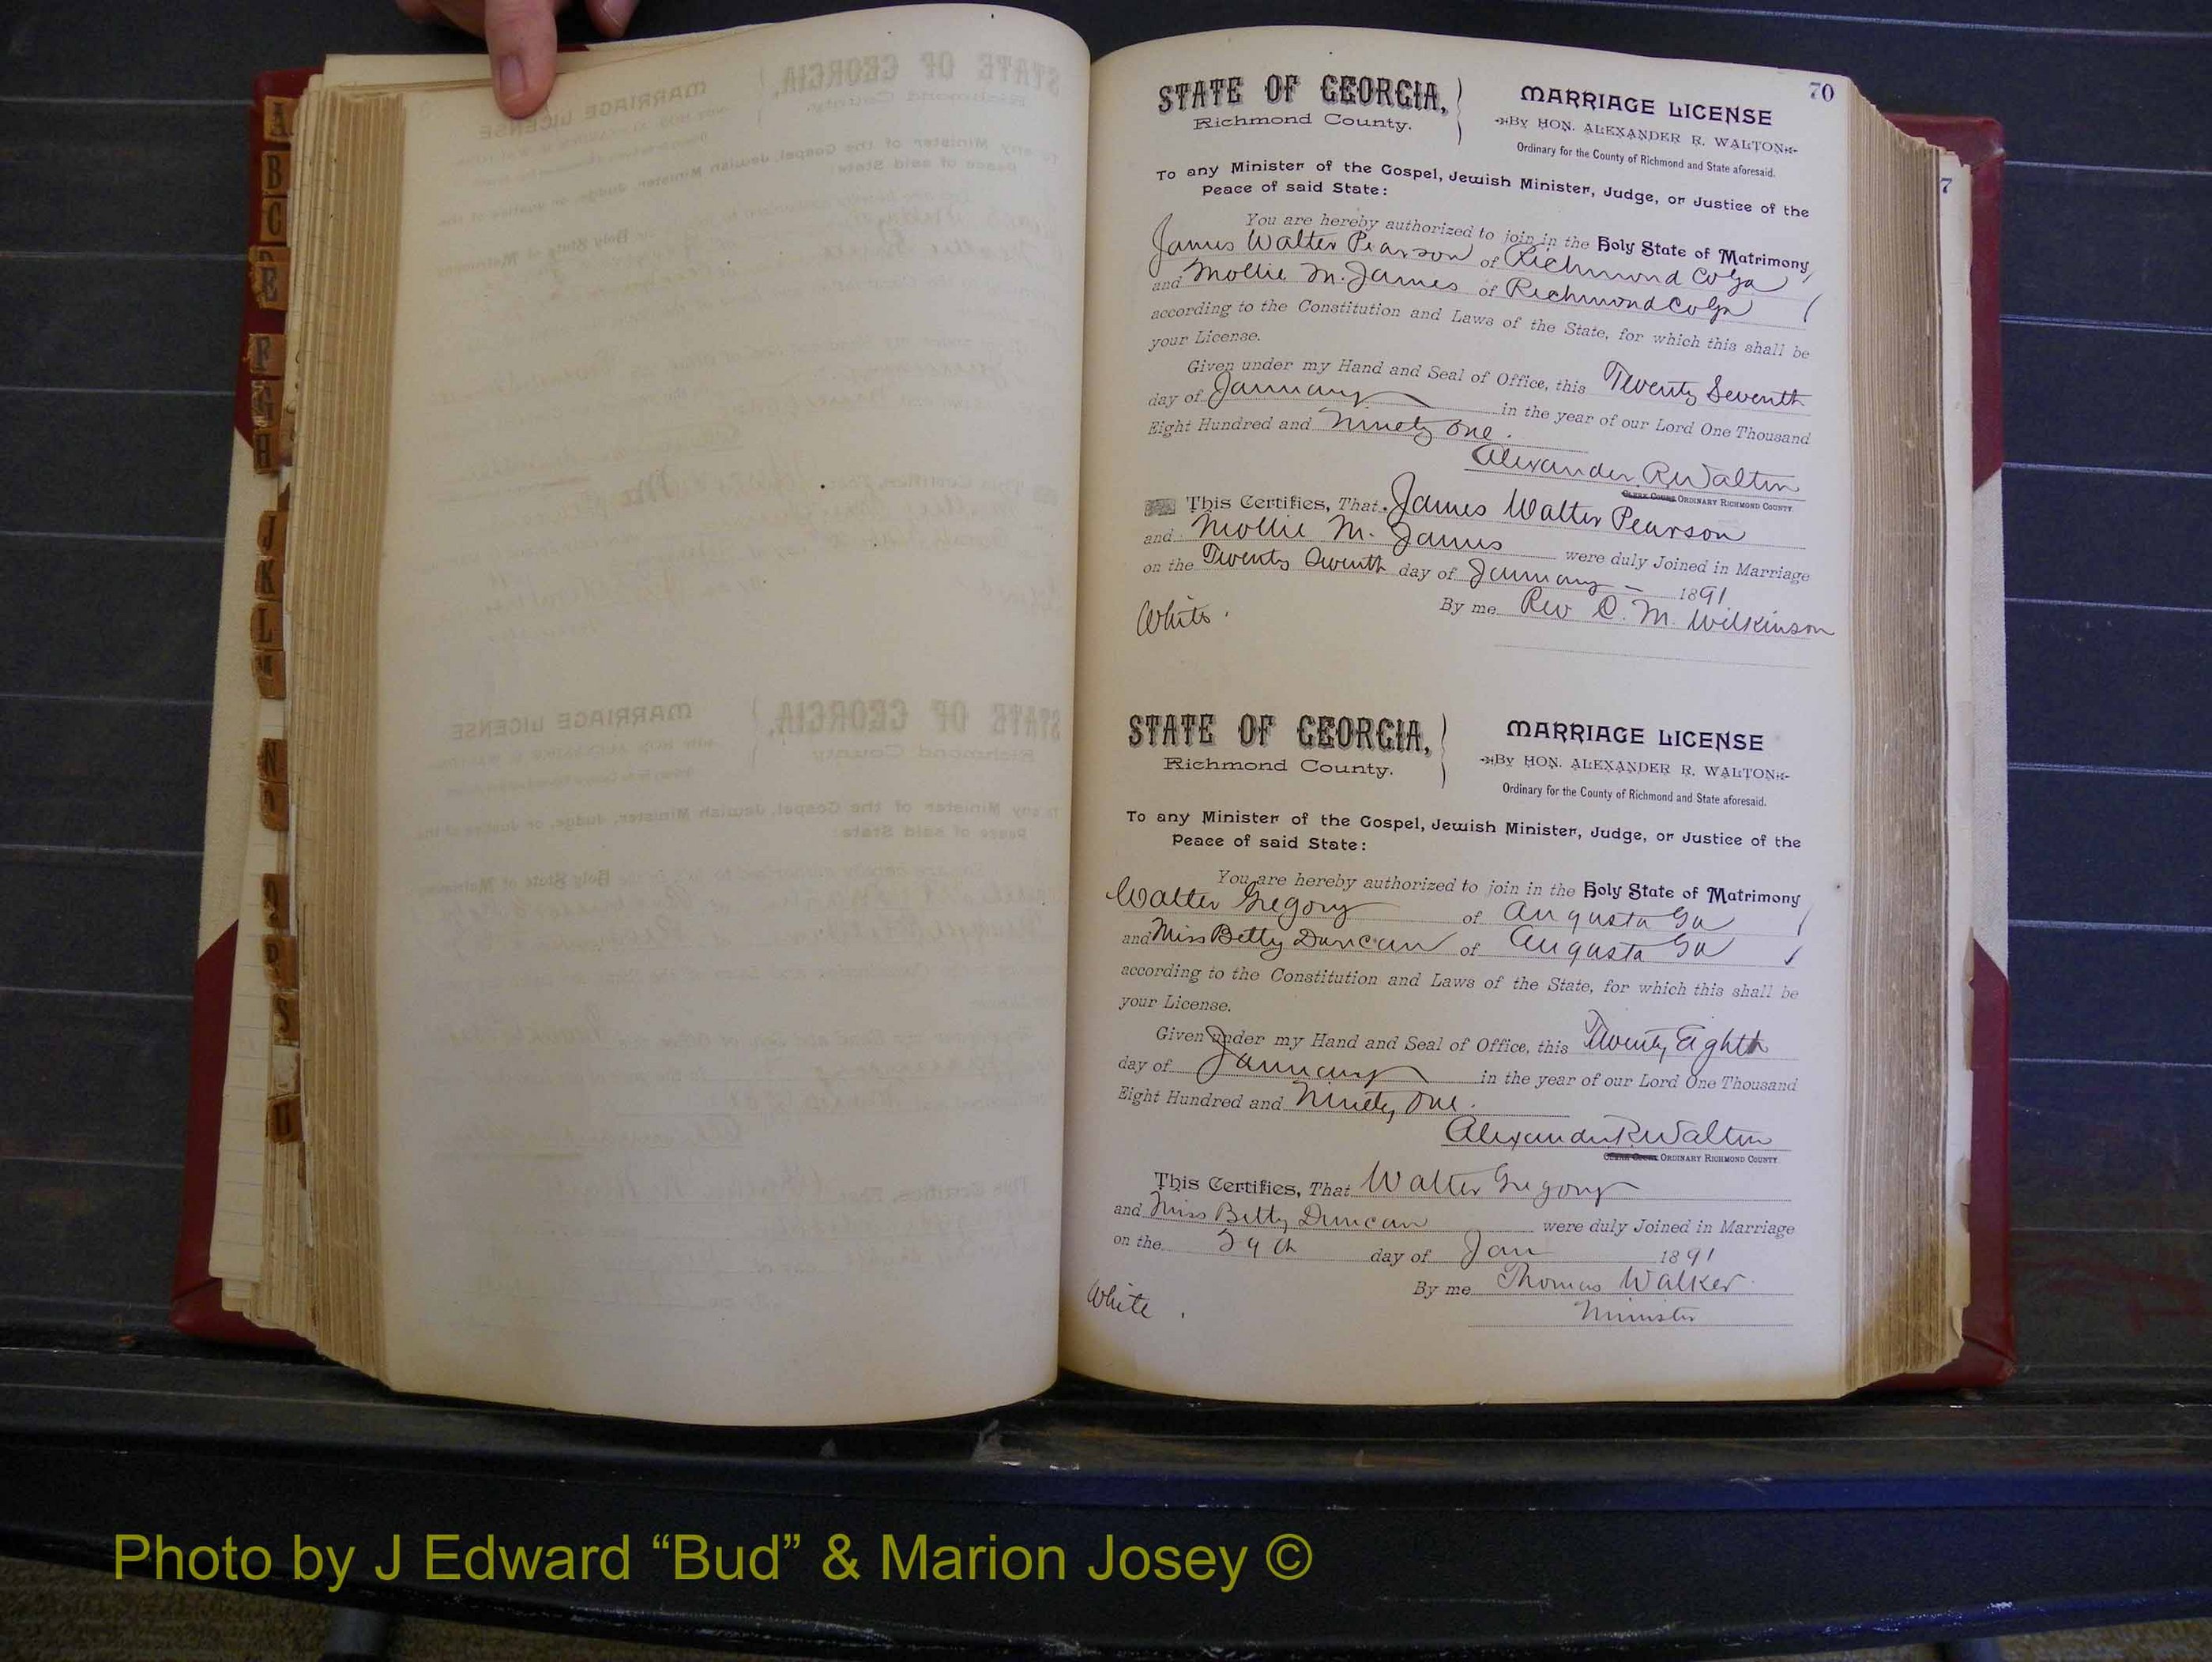 A
B
C
E
F
G
H
J
K
L
N
P
S
U
70
7
STATE OF GEORGIA,
Richmond County.
MARRIAGE LICENSE
By HON. ALEXANDER R. WALTON
Ordinary for the County of Richmond and State aforesaid.
To any Minister of the Gospel, Jewish Minister, Judge, or Justice of the
Peace of said State:
You are hereby authorized to join in the Holy State of Matrimony
James Walter Pearson of Richmond Co Ga
and Mollie M. James of Richmond Co Ga
according to the Constitution and Laws of the State, for which this shall be
your License.
Given under my Hand and Seal of Office, this Twenty Seventh
day of January in the year of our Lord One Thousand
Eight Hundred and Ninety One.
Alexander R Walton
CLERK COURT ORDINARY RICHMOND COUNTY.
This Certifies, That James Walter Pearson
and Mollie M. James were duly Joined in Marriage
on the Twenty day of January 1891
By me Rev O. M. Wilkinson
White.
STATE OF GEORGIA,
Richmond County.
MARRIAGE LICENSE
By HON. ALEXANDER R. WALTON
Ordinary for the County of Richmond and State aforesaid.
To any Minister of the Gospel, Jewish Minister, Judge, or Justice of the
Peace of said State:
You are hereby authorized to join in the Holy State of Matrimony
Walter Gregory of Augusta Ga
and Miss Betty Duncan of Augusta Ga
according to the Constitution and Laws of the State, for which this shall be
your License.
Given under my Hand and Seal of Office, this Twenty Eighth
day of January in the year of our Lord One Thousand
Eight Hundred and Ninety One.
Alexander R Walton
CLERK COURT ORDINARY RICHMOND COUNTY
This Certifies, That Walter Gregory
and Miss Betty Duncan were duly Joined in Marriage
on the 29th day of Jan 1891
By me Thomas Walker
Minister
White.
Photo by J Edward “Bud” & Marion Josey ©